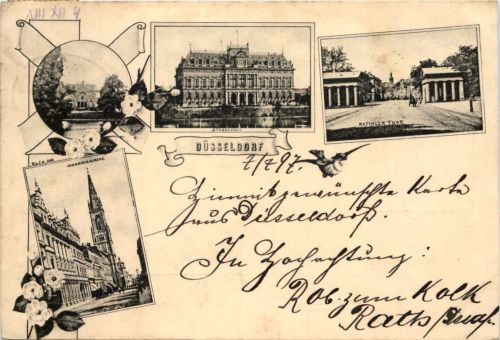 XIII XII 4
STÄNDEHAUS
RATINGER THOR
DÜSSELDORF
JOHANNISKIRCHE
7/7 97.
Karte
aus Düsseldorf.
In Hochachtung:
Rob. zum Kolk
Rath